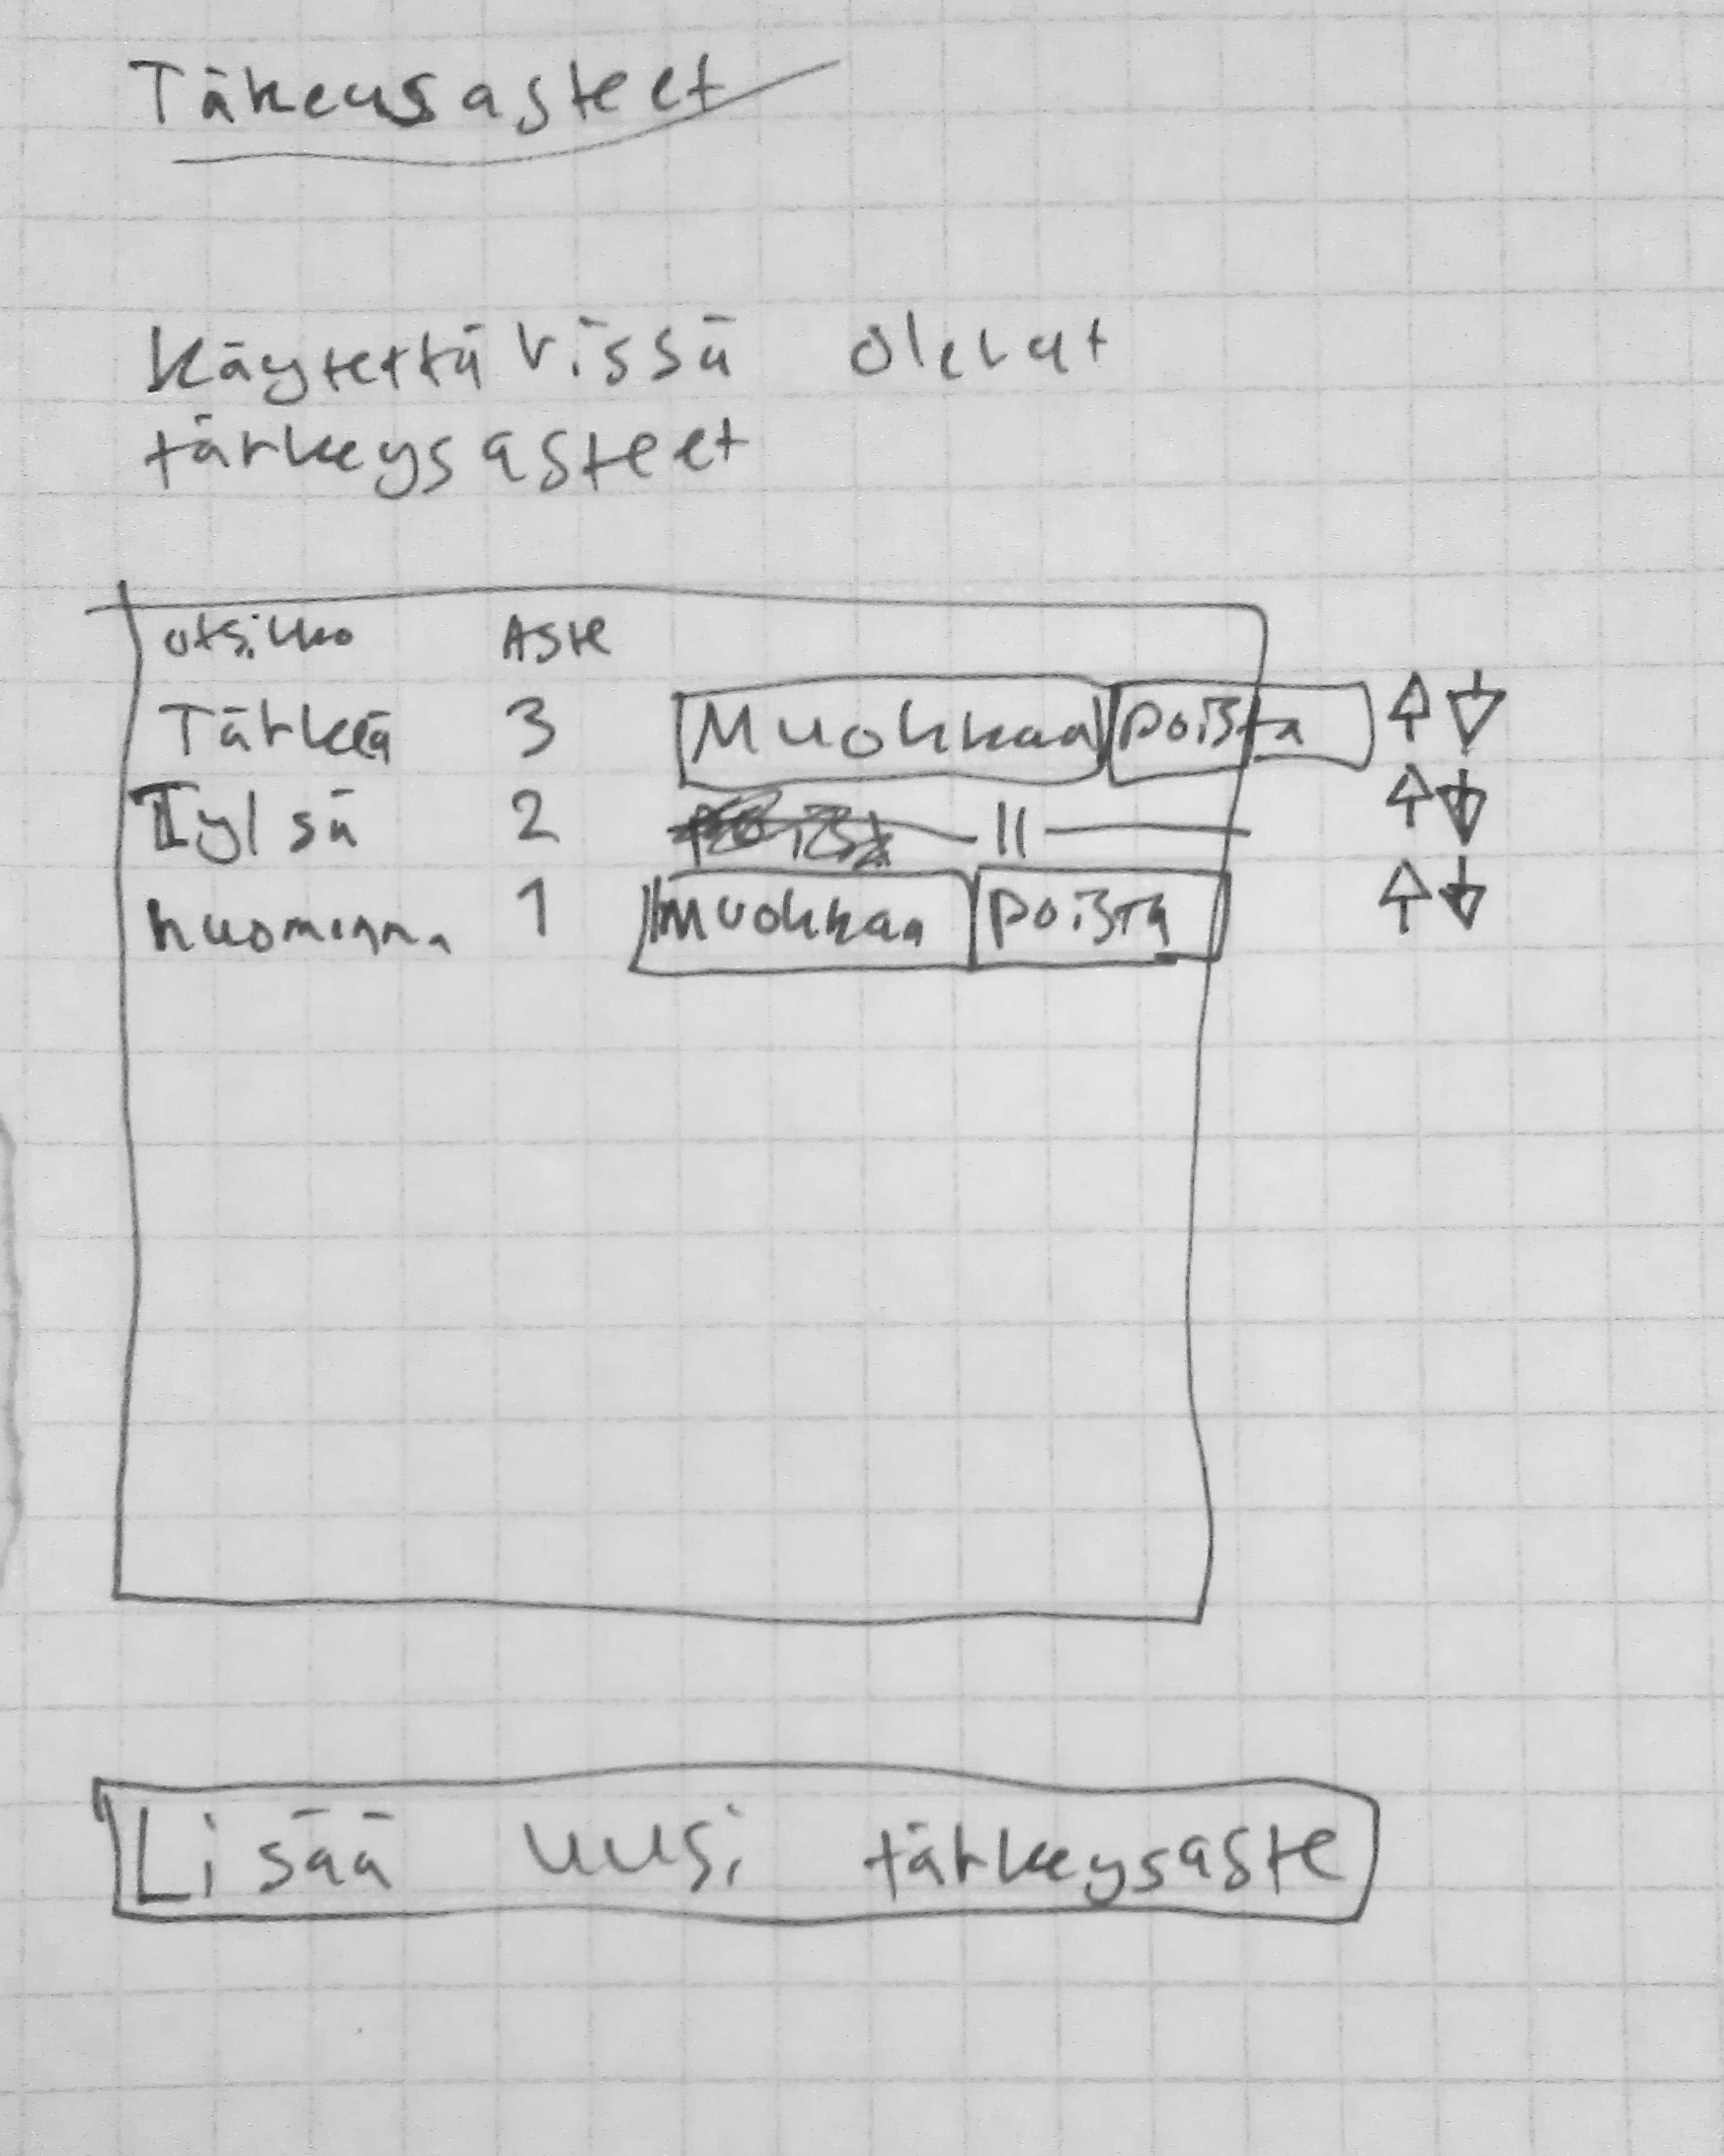 Täkeusasteet
Käytettävissä olevat
tärkeysasteet
otsikko Aste
Tärkeä 3 Muokkaa poista
Tylsä 2 — 11 —
huomenna 1 muokkaa poista
Lisää uusi tärkeysaste